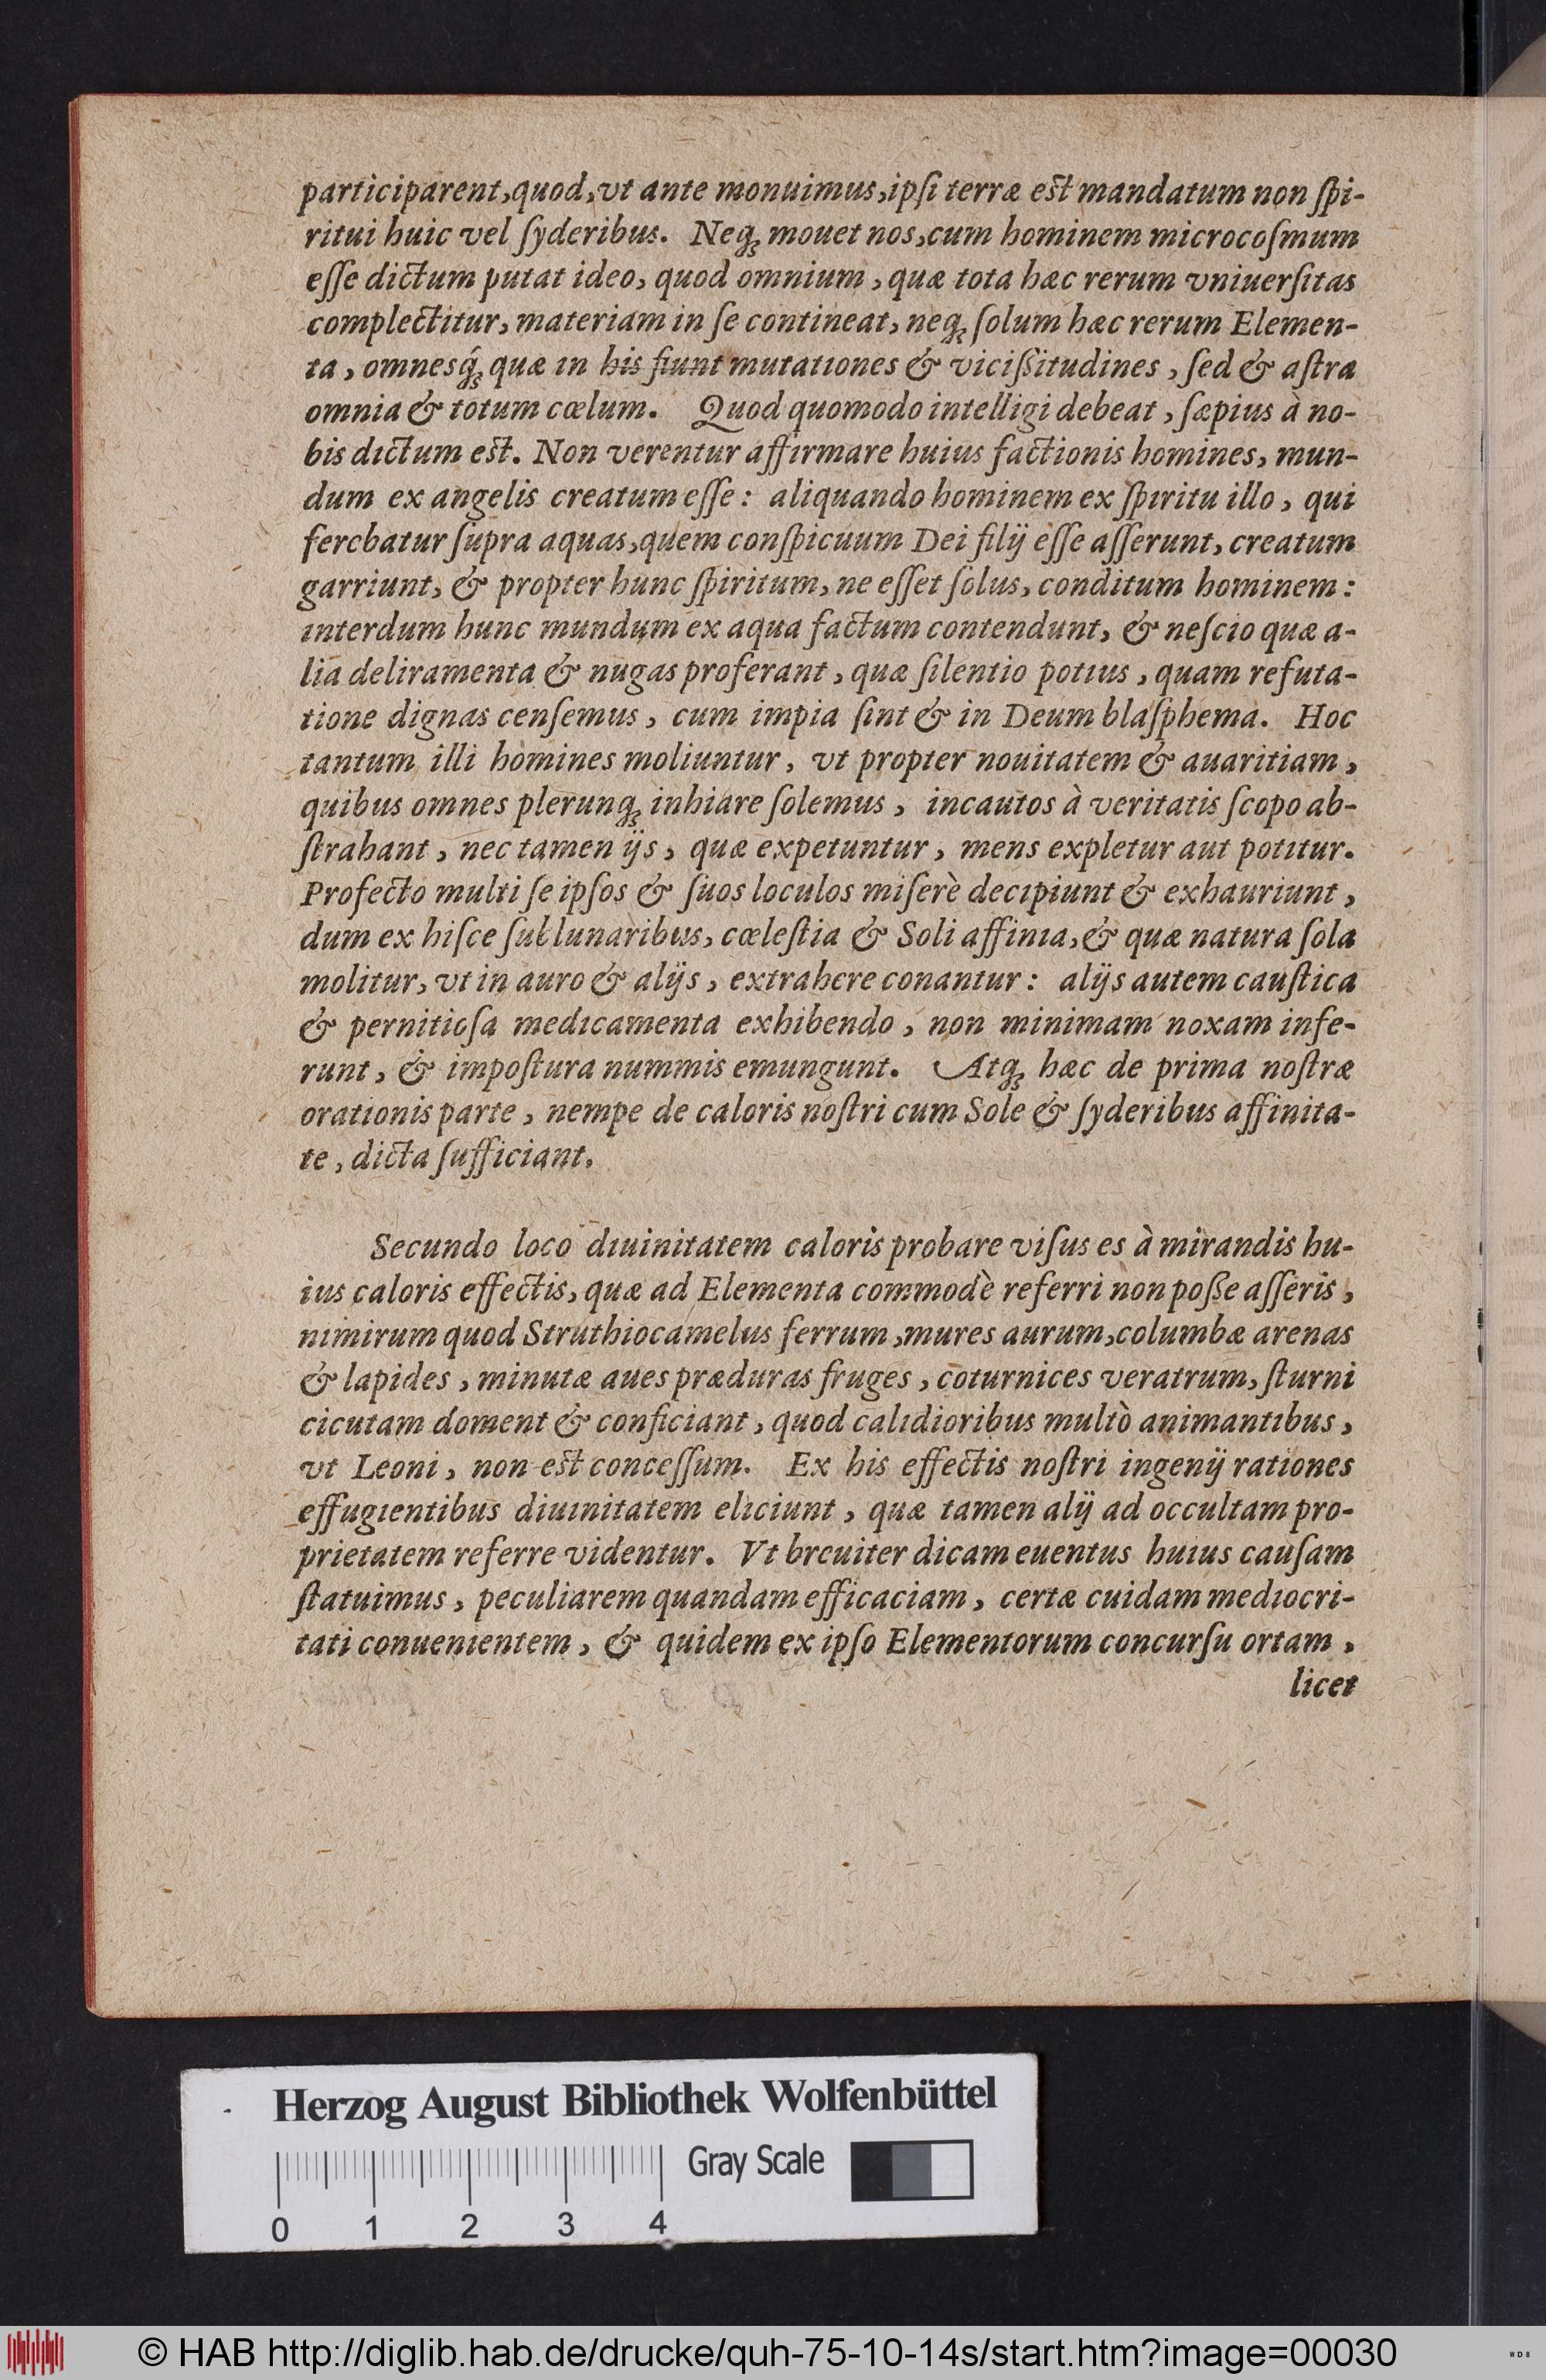 participarent,quod,vt ante monuimus,ipſi terræ est mandatum non ſpi-
ritui huic vel ſyderibus. Neq; mouet nos,cum hominem microcoſmum
eſſe dictum putat ideo, quod omnium, quæ tota hæc rerum vniuerſitas
complectitur, materiam in ſe contineat, neq; ſolum hæc rerum Elemen-
ta, omnesq́; quæ in his fiunt mutationes & viciſſitudines, ſed & aſtra
omnia & totum cœlum. Quod quomodo intelligi debeat, ſæpius à no-
bis dictum est. Non verentur affirmare huius factionis homines, mun-
dum ex angelis creatum eſſe: aliquando hominem ex ſpiritu illo, qui
ferebatur ſupra aquas,quem conſpicuum Dei filij eſſe aſſerunt, creatum
garriunt, & propter hunc ſpiritum, ne eſſet ſolus, conditum hominem:
interdum hunc mundum ex aqua factum contendunt, & neſcio quæ a-
lia deliramenta & nugas proferant, quæ ſilentio potius, quam refuta-
tione dignas cenſemus, cum impia ſint & in Deum blaſphema. Hoc
tantum illi homines moliuntur, vt propter nouitatem & auaritiam,
quibus omnes plerunq; inhiare ſolemus, incautos à veritatis ſcopo ab-
ſtrahant, nec tamen ijs, quæ expetuntur, mens expletur aut potitur.
Profecto multi ſe ipſos & ſuos loculos miſerè decipiunt & exhauriunt,
dum ex hiſce ſublunaribus, cœleſtia & Soli affinia,& quæ natura ſola
molitur, vt in auro & alijs, extrahere conantur: alijs autem cauſtica
& pernitioſa medicamenta exhibendo, non minimam noxam infe-
runt, & impoſtura nummis emungunt. Atq; hæc de prima noſtræ
orationis parte, nempe de caloris noſtri cum Sole & ſyderibus affinita-
te, dicta ſufficiant.
Secundo loco diuinitatem caloris probare viſus es à mirandis hu-
ius caloris effectis, quæ ad Elementa commodè referri non poſſe aſſeris,
nimirum quod Struthiocamelus ferrum,mures aurum,columbæ arenas
& lapides, minutæ aues præduras fruges, coturnices veratrum, ſturni
cicutam doment & conficiant, quod calidioribus multò animantibus,
vt Leoni, non est conceſſum. Ex his effectis noſtri ingenij rationes
effugientibus diuinitatem eliciunt, quæ tamen alij ad occultam pro-
prietatem referre videntur. Vt breuiter dicam euentus huius cauſam
ſtatuimus, peculiarem quandam efficaciam, certæ cuidam mediocri-
tati conuenientem, & quidem ex ipſo Elementorum concurſu ortam,
licet
Herzog August Bibliothek Wolfenbüttel
Gray Scale
0 1 2 3 4
© HAB http://diglib.hab.de/drucke/quh-75-10-14s/start.htm?image=00030
WDB